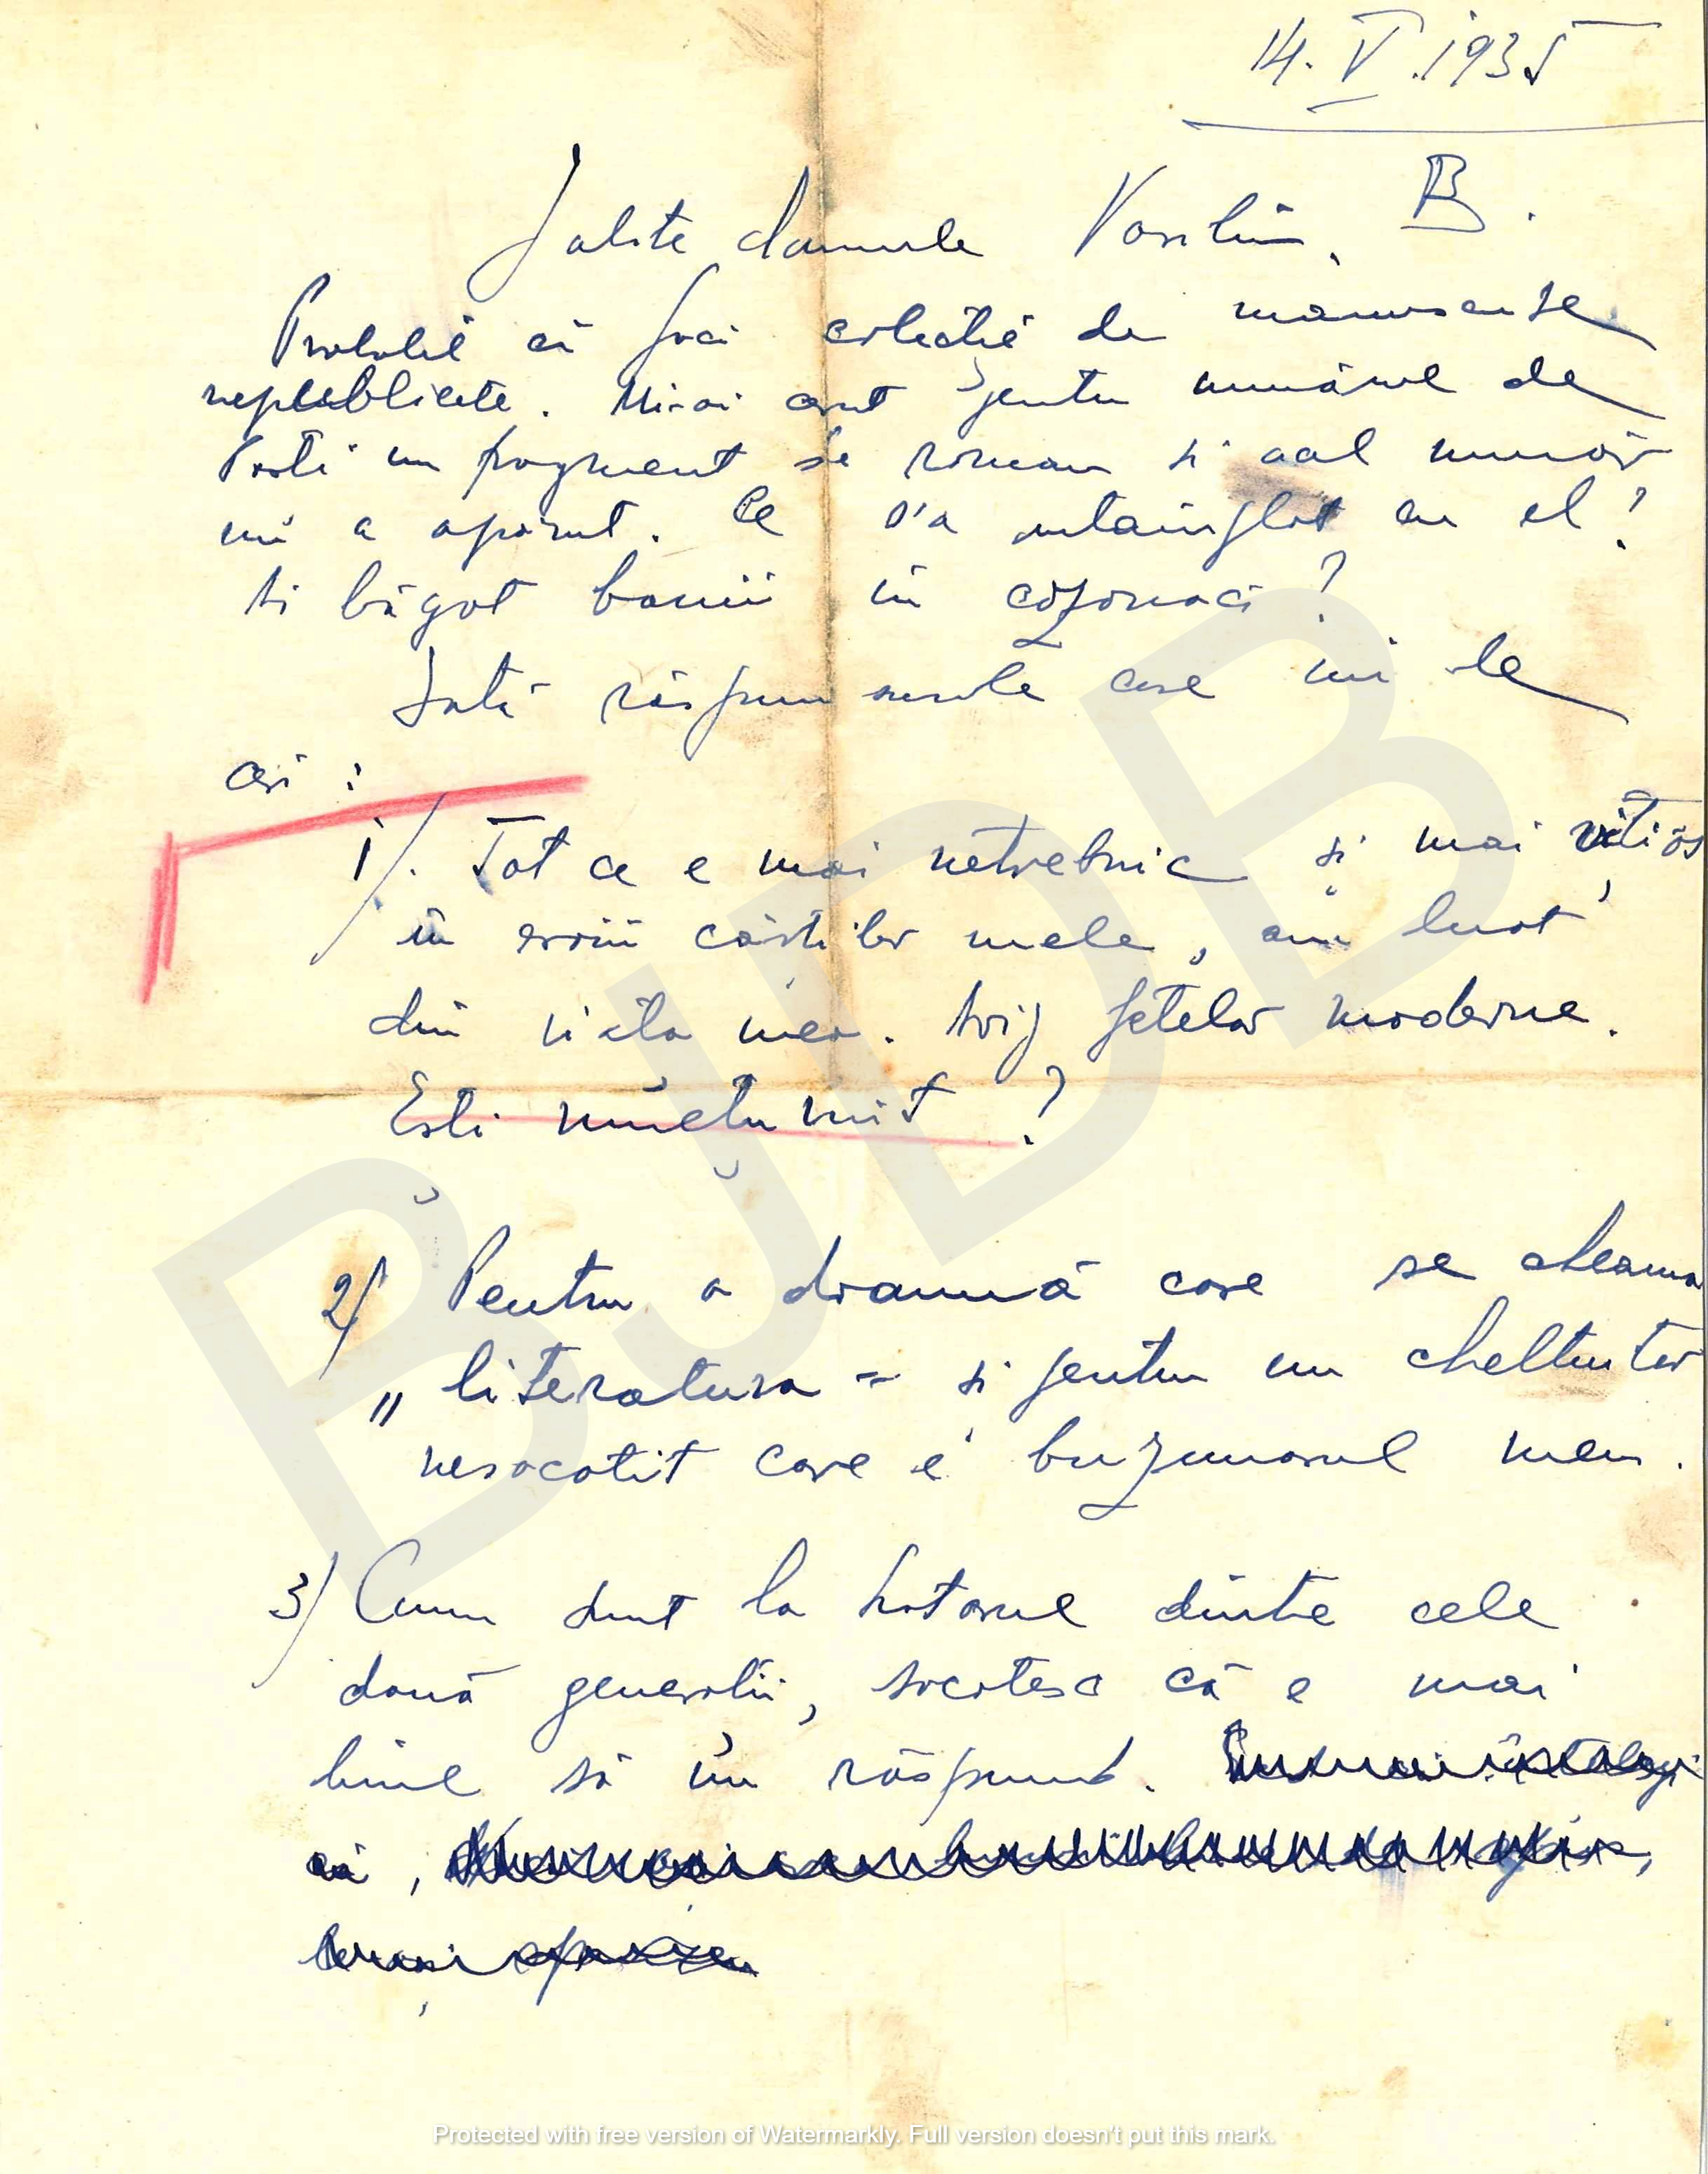 14. V. 1935
B.
Iubite domnule Vasiliu,
Probabil că faci colecție de manuscrise
nepublicate. Mi-ai cerut pentru numărul de
Paști un fragment de roman și acel număr
nu a apărut. Ce s'a întâmplat cu el?
Ai băgat banii în cozonaci?
Iată răspunsurile care mi le
ceri:
1/. Tot ce e mai netrebnic și mai vițios
în eroii cărților mele, am luat
din viața mea. Strig fetelor moderne.
Ești mulțumit?
2/ Pentru o dramă care se cheamă
„literatura" și pentru un cheltuitor
nesocotit care e buzunarul meu.
3/ Cum sunt la hotarul dintre cele
două generații, socotesc că e mai
bine să nu răspund.
că,
BJDB
Protected with free version of Watermarkly. Full version doesn't put this mark.